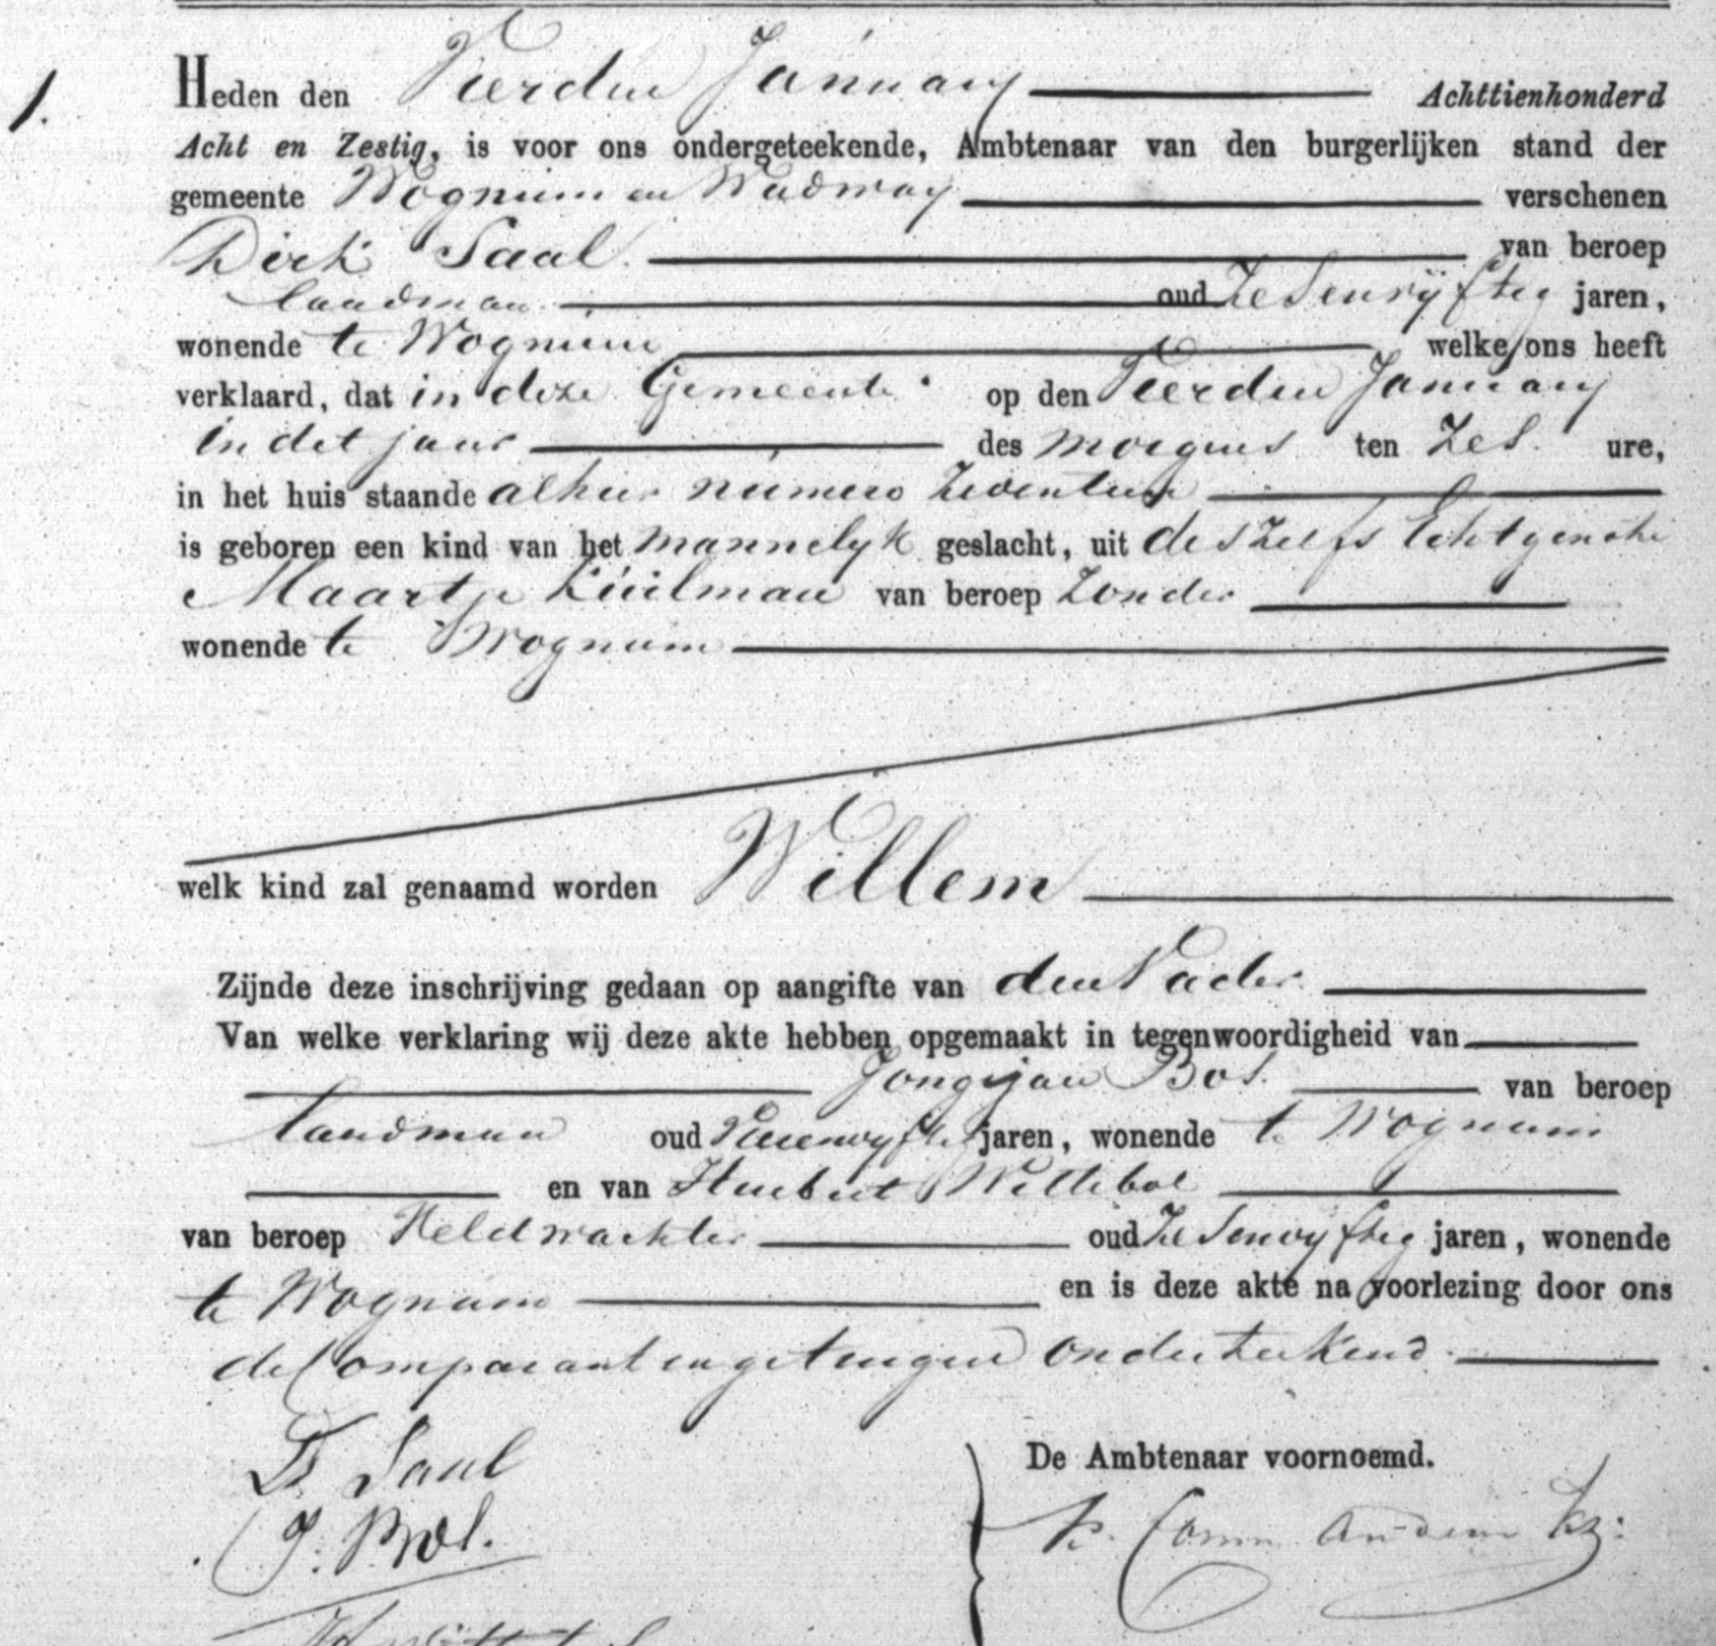 1.
Heden den Vierden January Achttienhonderd
Acht en Zestig, is voor ons ondergeteekende, Ambtenaar van den burgerlijken stand der
gemeente Wognum en Wadway verschenen
Dirk Saal. van beroep
Landman oud Zesenvijftig jaren,
wonende te Wognum welke ons heeft
verklaard, dat in deze Gemeente op den Vierden January
in dit jaar des morgens ten Zes. ure,
in het huis staande alhier numero Zeventien
is geboren een kind van het mannelyk geslacht, uit deszelfs Echtgenote
Maartje Kuilman van beroep Zonder
wonende te Wognum
welk kind zal genaamd worden Willem
Zijnde deze inschrijving gedaan op aangifte van den Vader
Van welke verklaring wij deze akte hebben opgemaakt in tegenwoordigheid van
Jongejan van beroep
Landman oud jaren, wonende te Wognum
en van
van beroep Veldwachter oud Zesenvyftig jaren, wonende
te Wognum en is deze akte na voorlezing door ons
de Comparant en getuigen onderteekend.
D. Saal
De Ambtenaar voornoemd.
J.